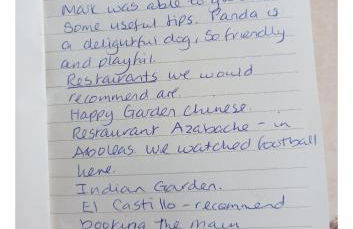 Mark was able to
Some useful tips. Panda is
a delightful dog, so friendly
and playful.
Restaurants we would
recommend are
Happy Garden Chinese.
Restaurant Azabache - in
Arboleas. We watched football
here.
Indian Garden.
El Castillo - recommend
booking the main